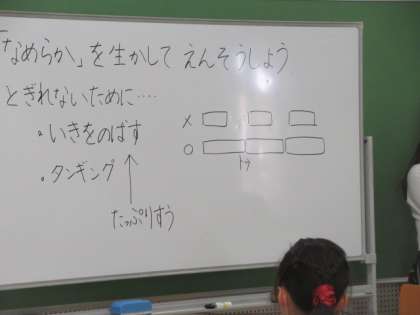 「なめらか」を生かして えんそうしよう
とぎれないために‥‥
・いきをのばす
・タンギング
たっぷりすう
×
○
トゥ